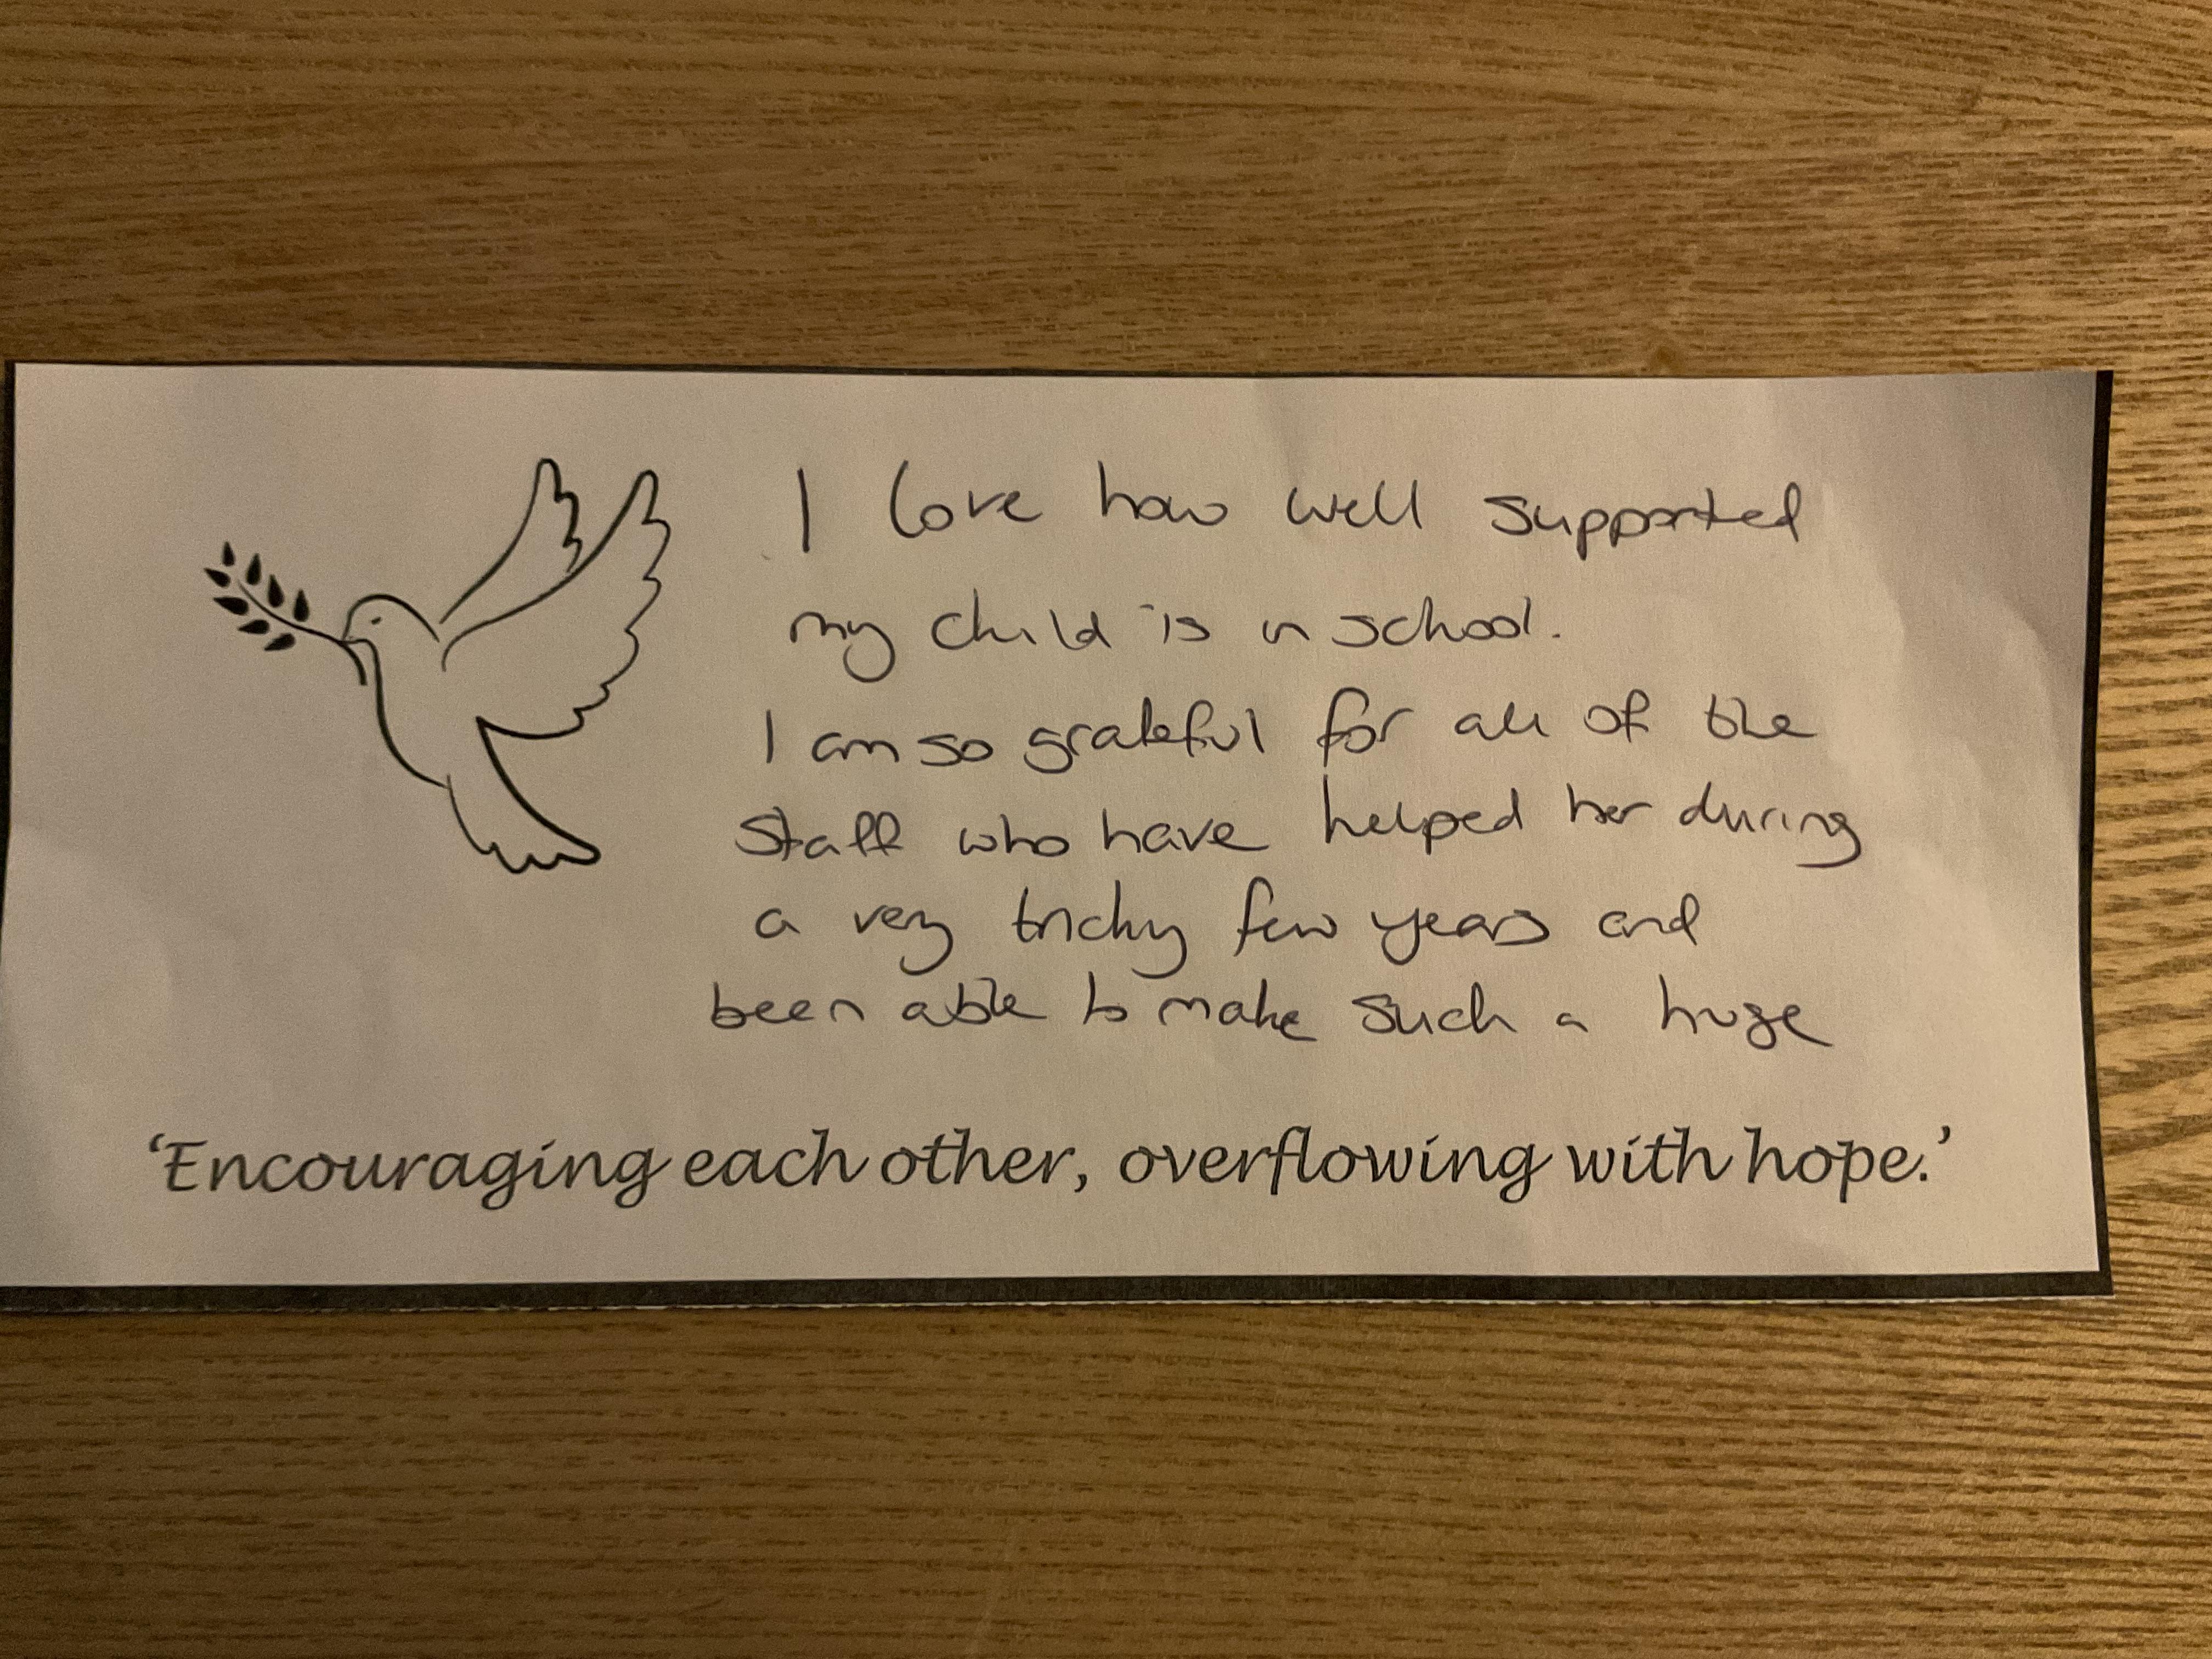 I love how well supported
my child is in school.
I am so grateful for all of the
staff who have helped her during
a very tricky few years and
been able to make such a huge
‘Encouraging each other, overflowing with hope.’